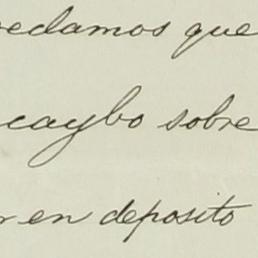 vedamos que
caybo sobre
r en deposito